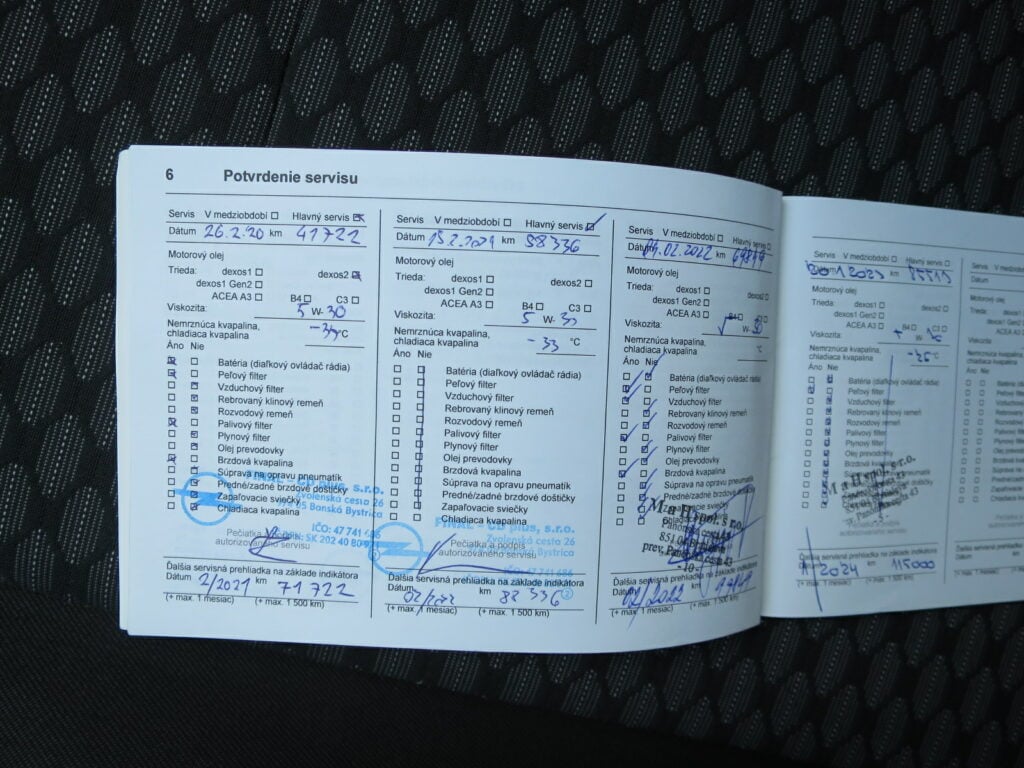 6 Potvrdenie servisu
Servis V medziobdobí Hlavný servis
Dátum 26.2.20 km 41722
Motorový olej
Trieda: dexos1 dexos2
dexos1 Gen2
ACEA A3 B4 C3
Viskozita: 5 W- 30
Nemrznúca kvapalina,
chladiaca kvapalina °C
Áno Nie
Batéria (diaľkový ovládač rádia)
Peľový filter
Vzduchový filter
Rebrovaný klinový remeň
Rozvodový remeň
Palivový filter
Plynový filter
Olej prevodovky
Brzdová kvapalina
Súprava na opravu pneumatík
Predné/zadné brzdové doštičky
Zapaľovacie sviečky
Chladiaca kvapalina
plus, s.r.o.
Zvolenská cesta 26
974 05 Banská Bystrica
IČO: 47 741 686
Pečiatka a podpis
autorizovaného servisu
Ďalšia servisná prehliadka na základe indikátora
Dátum 2/2021 km 71 722
(+ max. 1 mesiac) (+ max. 1 500 km)
Servis V medziobdobí Hlavný servis
Dátum 15.2.2021 km 58336
Motorový olej
Trieda: dexos1 dexos2
dexos1 Gen2
ACEA A3 B4 C3
Viskozita: 5 W- 30
Nemrznúca kvapalina,
chladiaca kvapalina - 33 °C
Áno Nie
Batéria (diaľkový ovládač rádia)
Peľový filter
Vzduchový filter
Rebrovaný klinový remeň
Rozvodový remeň
Palivový filter
Plynový filter
Olej prevodovky
Brzdová kvapalina
Súprava na opravu pneumatík
Predné/zadné brzdové doštičky
Zapaľovacie sviečky
Chladiaca kvapalina
FINAL - CD plus, s.r.o.
Zvolenská cesta 26
Banská Bystrica
Pečiatka a podpis
autorizovaného servisu
IČO: 47 741 686
Ďalšia servisná prehliadka na základe indikátora
Dátum 02/2022 km 88 336
(+ max. 1 mesiac) (+ max. 1 500 km)
Servis V medziobdobí Hlavný servis
Dátum 04.02.2022 km
Motorový olej
Trieda: dexos1 dexos2
dexos1 Gen2
ACEA A3 B4
Viskozita: W- 30
Nemrznúca kvapalina,
chladiaca kvapalina °C
Áno Nie
Batéria (diaľkový ovládač rádia)
Peľový filter
Vzduchový filter
Rebrovaný klinový remeň
Rozvodový remeň
Palivový filter
Plynový filter
Olej prevodovky
Brzdová kvapalina
Súprava na opravu pneumatík
Predné/zadné brzdové doštičky
Ďalšia servisná prehliadka na základe indikátora
Dátum km
(+ max. 1 mesiac) (+ max. 1 500 km)
Servis V medziobdobí Hlavný servis
km 85515
Motorový olej
Trieda: dexos1 dexos2
dexos1 Gen2
ACEA A3 B4 C3
Viskozita: W
Nemrznúca kvapalina,
chladiaca kvapalina °C
Áno Nie
Batéria (diaľkový ovládač rádia)
Peľový filter
Vzduchový filter
Rebrovaný klinový remeň
Rozvodový remeň
Palivový filter
Plynový filter
Olej prevodovky
Brzdová kvapalina
Súprava na opravu pneumatík
autorizovaného servisu
Ďalšia servisná prehliadka na základe indikátora
2024 km 115000
(+ max. 1 mesiac) (+ max. 1 500 km)
Servis
Dátum
Motorový olej
Trieda:
Viskozita:
Nemrznúca kvapalina,
chladiaca kvapalina
Áno Nie